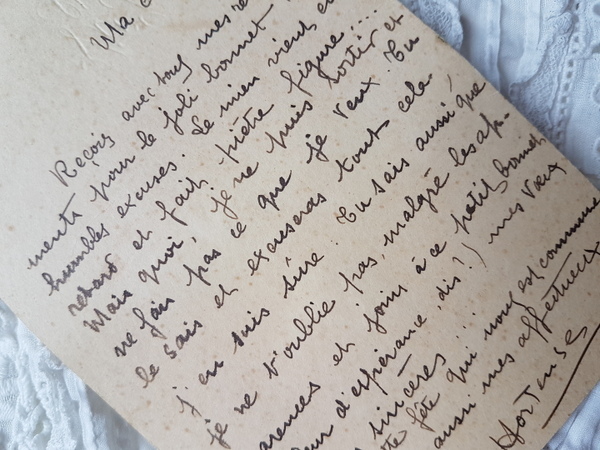 Ma
Reçois avec tous mes re
ments pour le joli bonnet
humbles excuses. Le mien vient en
retard et fait piètre figure...
Mais quoi, je ne puis sortir et
ne fais pas ce que je veux. Tu
le sais et excuseras tout cela
j'en suis sûre. Tu sais aussi que
je ne t'oublie pas, malgré les ap-
arences et joins à ce petit bonnet
d'espérance, dis?) mes vœux
sincères
fête qui nous est commune
aussi mes affectueux
Hortense